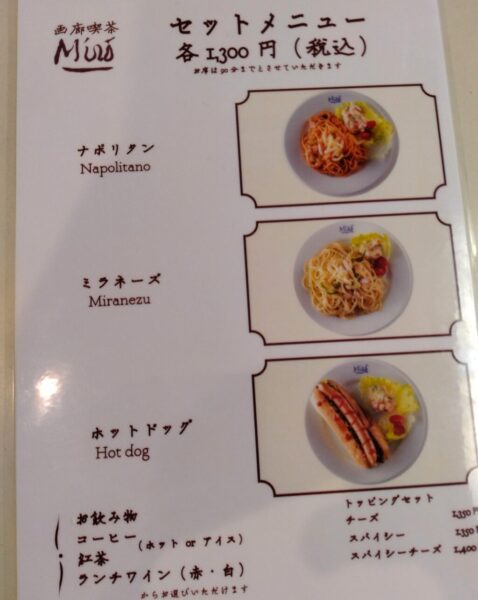 画廊喫茶
Miró
セットメニュー
各 1,300 円（税込）
お席は90分までとさせていただきます
ナポリタン
Napolitano
ミラネーズ
Miranezu
ホットドッグ
Hot dog
お飲み物
コーヒー（ホット or アイス）
紅茶
ランチワイン（赤・白）
からお選びいただけます
トッピングセット
チーズ 1,350 円
スパイシー 1,350
スパイシーチーズ 1,400